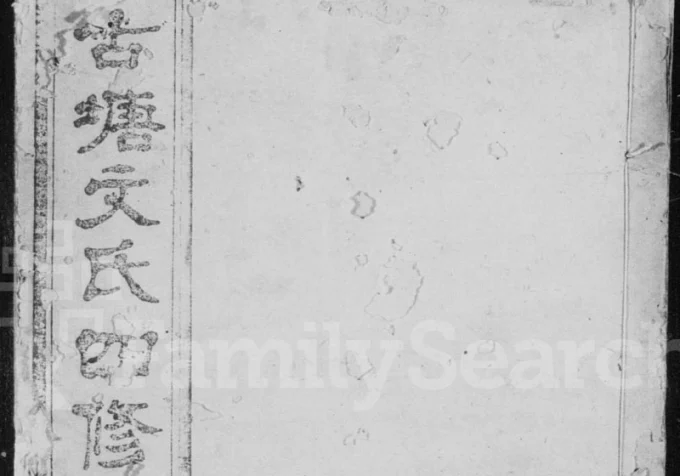 古塘文氏四修
FamilySearch